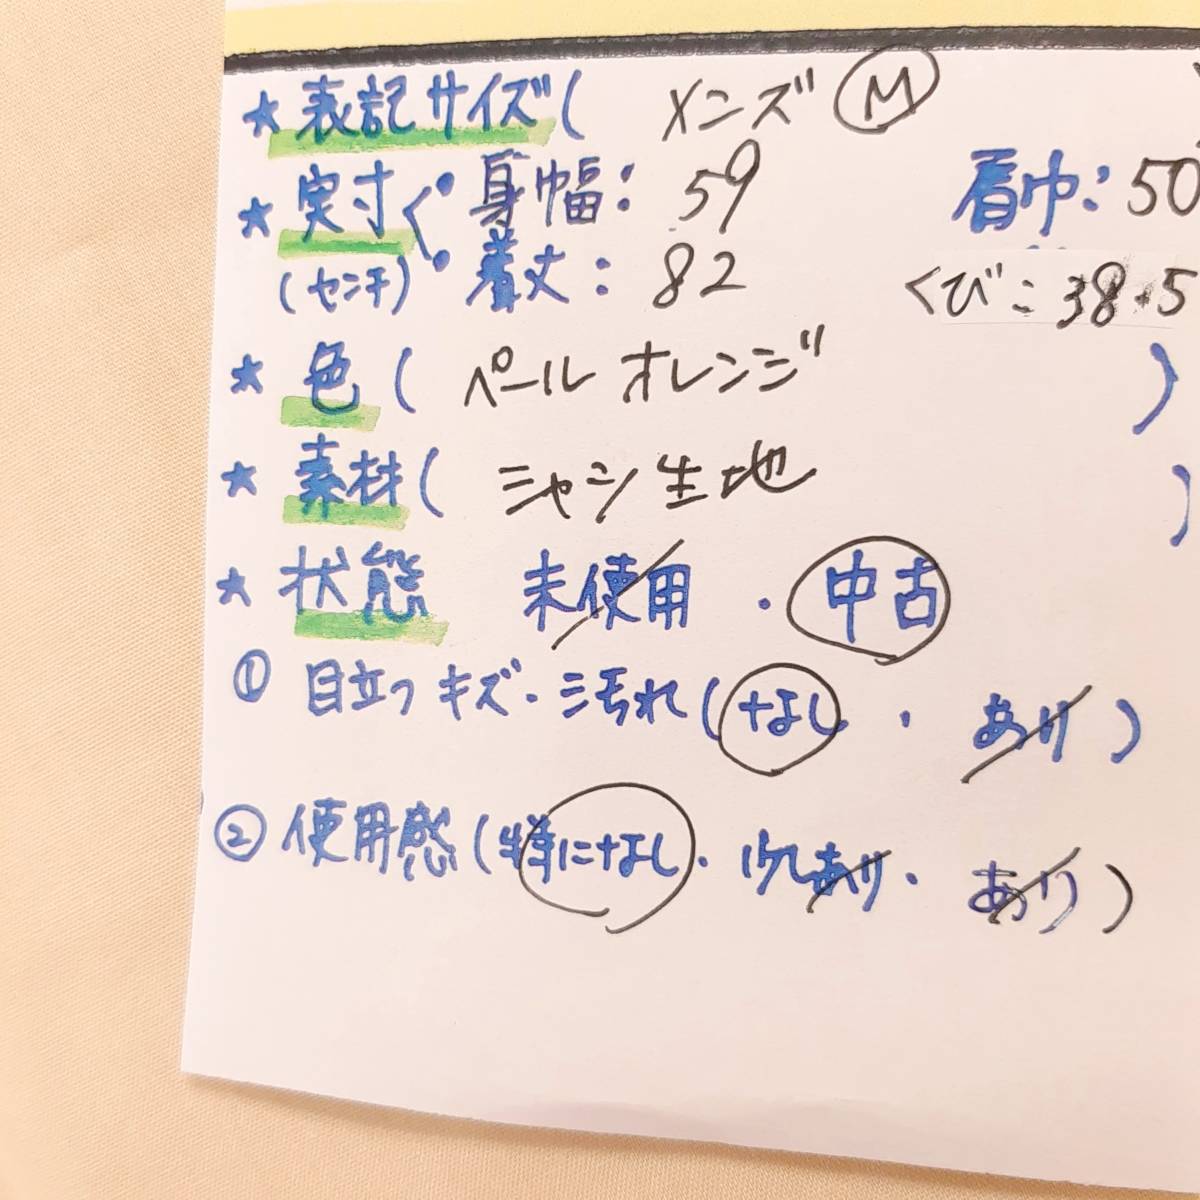 ★ 表記サイズ( メンズ Ⓜ
★ 実寸く・身幅: 59 肩巾: 50
(センチ) ・着丈: 82 くび: 38.5
★ 色( ペールオレンジ )
★ 素材( シャツ生地 )
★ 状態 未使用 ・ 中古
① 目立つキズ・汚れ(なし ・ あり)
② 使用感(特になし・少しあり・あり)